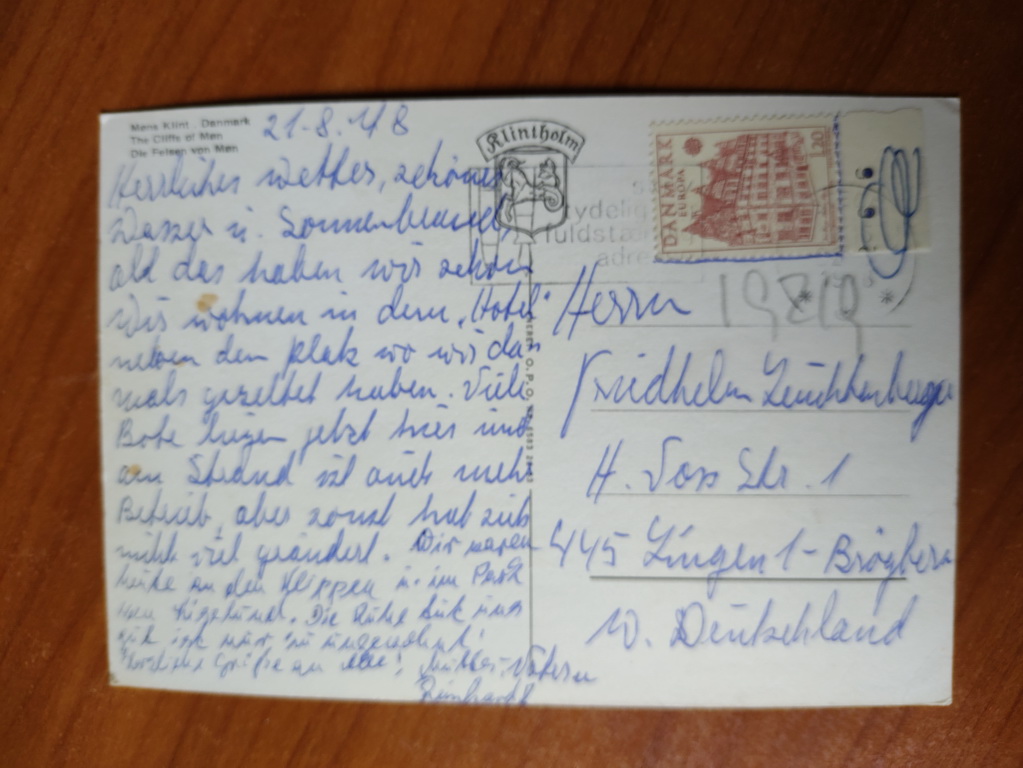 Møns Klint . Danmark
The Cliffs of Møn
Die Felsen von Møn
21-8.78
Herrliches Wetter, schönes
Wasser u. Sonnenbrand,
all das haben wir schon
Wir wohnen in dem „Hotel"
neben dem Platz wo wir da
mals gezeltet haben. Viele
Bote liegen jetzt hier und
am Strand ist auch mehr
Betrieb, aber sonst hat sich
nicht viel geändert. Wir waren
heute an den Klippen u. im Park
von Liselund. Die Ruhe tut uns
gut ist nur zu ungewohnt!
Herzliche Grüße an alle! Mutter - Vatern
Reinhardt
Klintholm
tydelig
fuldstæn
adre
DANMARK
EUROPA
120
1978
Herrn
Friedhelm Leuchtenberger
H. Voss Str. 1
445 Lingen 1 - Brögbern
W. Deutschland